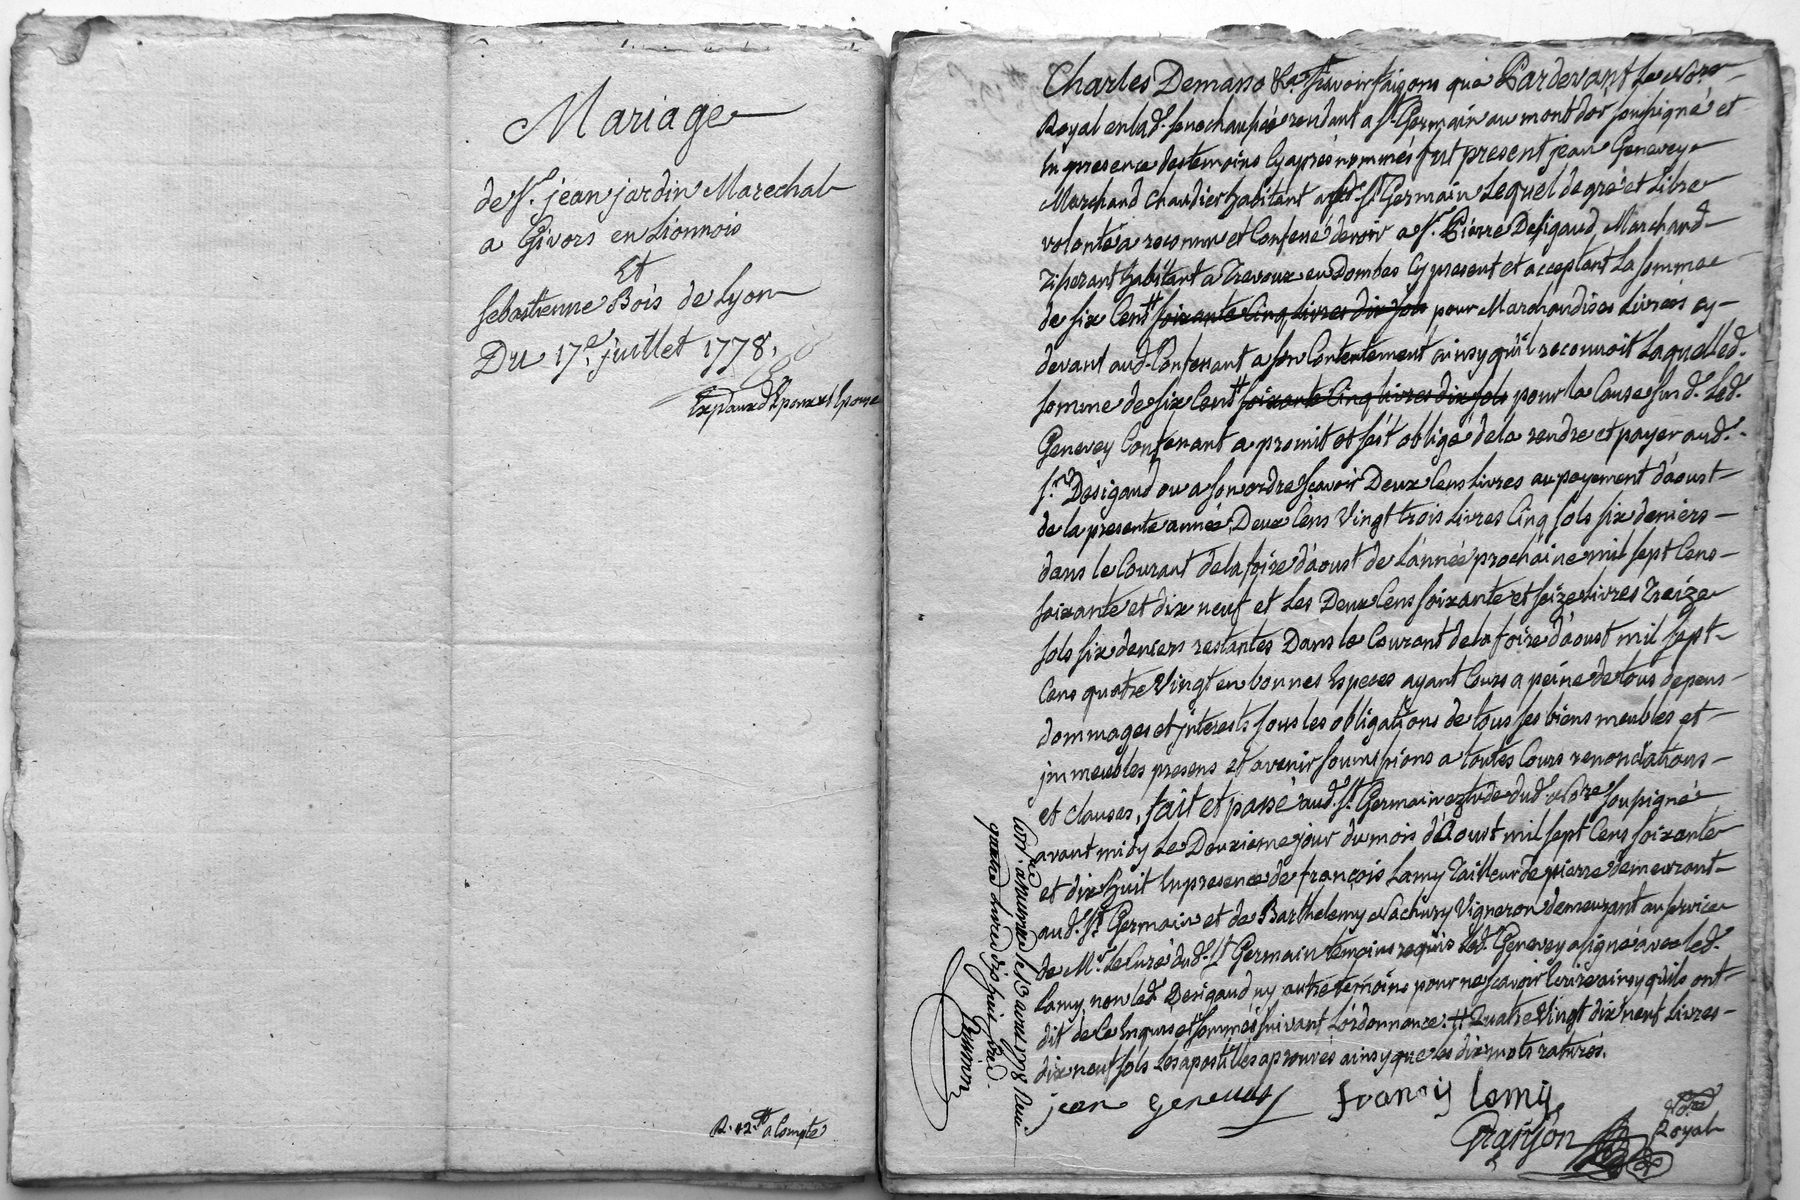 Mariage
de Sr. jean jardin Marechal
a Givors en Lionnois
Et
Sebastienne Bois de Lyon
Du 17e. juillet 1778.
Exp aux d. Epoux et Epouse
R. 12.# a Compte
Charles Demano &ca. Sçavoir faisons que Pardevant Le Nore
Royal en lad. senechaussée residant a St. Germain au mont dor soussigné et
En presence des temoins Cy après nommés fut present jean Genevey
Marchand Chandier habitant aud. St Germain Lequel de gré et Libre
volonté a reconnu et Confessé devoir a Sr. Pierre Desigaud Marchand
Tisserant habitant a Trevoux en Dombes Cy present et acceptant La somme
de six Cent # soixante Cinq Livres dix sols pour Marchandises Livrées cy
devant aud. Confessant a son Contentement ainsy qu'il reconnoit Laquelled.
somme de six Cent # soixante Cinq livres dix sols pour la Cause sus d. Led.
Genevey Confessant a promit et s'est obligé de la rendre et payer aud.
Sr. Desigaud ou a son ordre sçavoir Deux Cens Livres au payement d'aoust
de la presente année, Deux Cens Vingt trois Livres Cinq sols six deniers
dans le Courant de la foire d'aoust de L'année prochaine mil sept Cens
soixante et dix neuf et Les Deux Cens soixante et seize livres Treize
sols six deniers restantes Dans le Courant de la foire d'aoust mil sept
Cens quatre Vingt en bonnes Especes ayant Cours a peine de tous depens
dommages et jnterests sous les obligations de tous ses biens meubles et
jmmeubles presens et avenir soumissions a toutes Cours renonciations
et clauses, fait et passé aud. St. Germain etude dud. Nore soussigné
avant midy Le Deuxieme jour du mois d'Aoust mil sept Cens soixante
et dix huit En presence de françois Lamy Tailleur de pierre demeurant
aud. St. Germain et de Barthelemy Vachury Vigneron demeurant au service
de Mr. Le Curé dud. St Germain temoins requis Led. Genevey a signé avec led.
Lamy non led. Desigaud ny autre temoins pour ne sçavoir Ecrire ainsy qu'ils ont
dit de Ce Enquis et sommés suivant L'ordonnance. # Quatre Vingt dix neuf Livres
dix neuf sols Les apostilles aprouvés ainsy que les dix mots raturés.
jean Genevey francois lamy
Granjon Nore
Royal